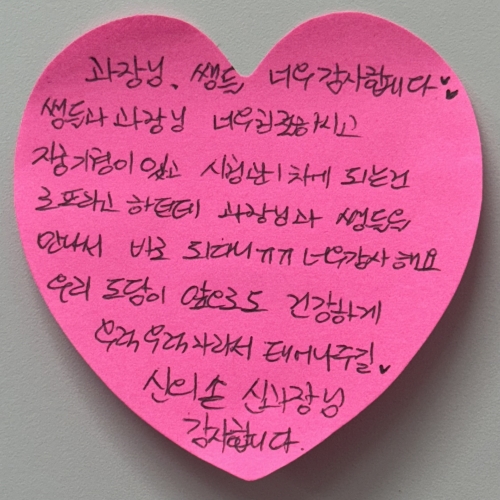 과장님, 쌤들 너무 감사합니다♥♥
쌤들과 과장님 너무 친절하시고
자궁기형이 있고 시험관 1차에 되는건
로또라고 하던데 과장님과 쌤들을
만나서 바로 되다니 ㅠㅠ 너무 감사해요
우리 도담이 앞으로도 건강하게
무럭무럭 자라서 태어나주길♥
신의 손 신과장님
감사합니다.